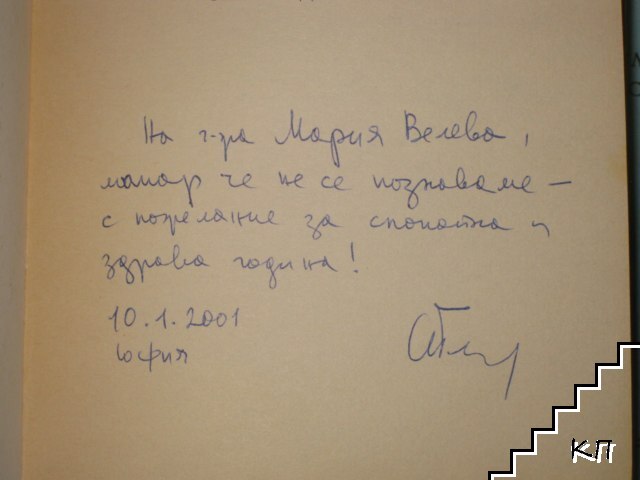 На г-жа Мария Велева,
макар че не се познаваме –
с пожелание за спокойна и
здрава година!
10.1.2001
София
КП